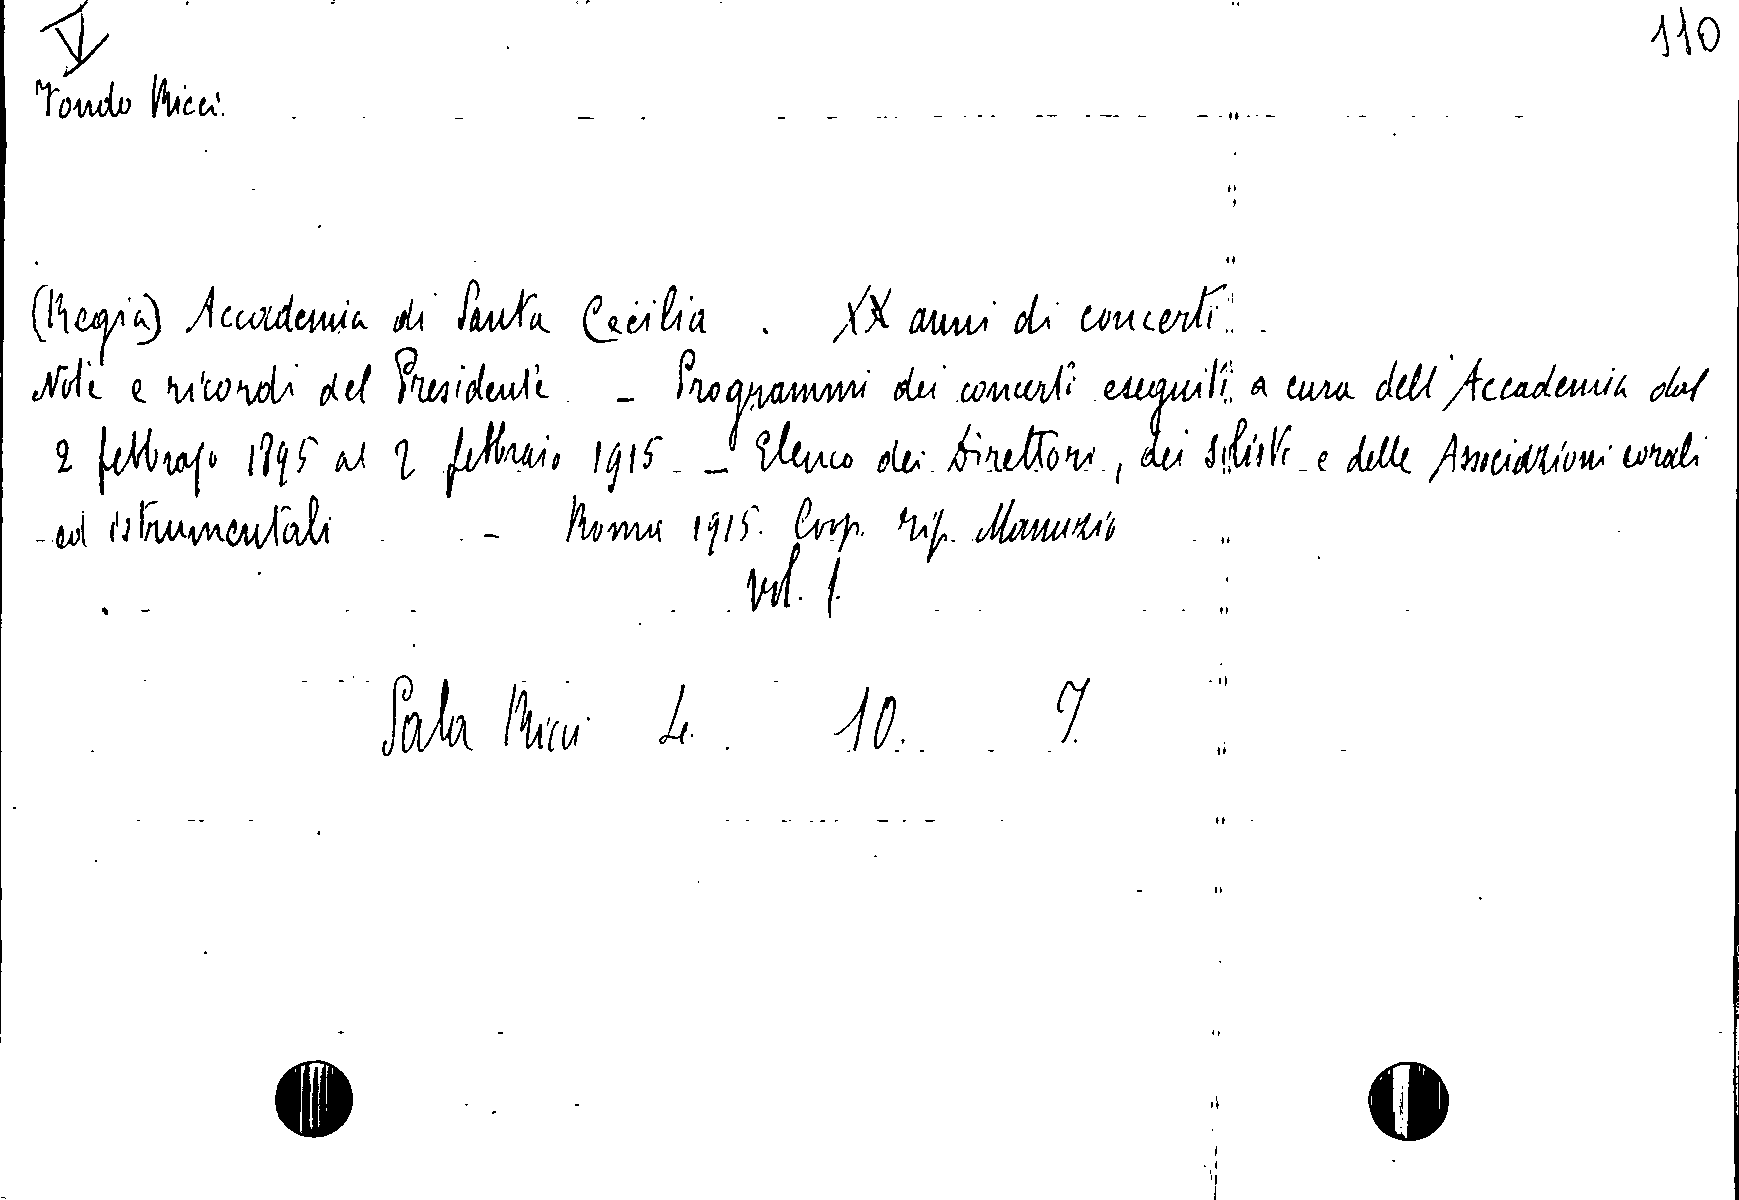 V
110
Fondo Ricci.
(Regia) Accademia di Santa Cecilia . XX anni di concerti.
Note e ricordi del Presidente – Programmi dei concerti eseguiti a cura dell'Accademia dal
2 febbrajo 1895 al 2 febbraio 1915 – Elenco dei Direttori, dei solisti e delle Associazioni corali
ed istrumentali – Roma 1915. Coop. tip. Manuzio
vol. 1.
Sala Ricci 4. 10. 7.